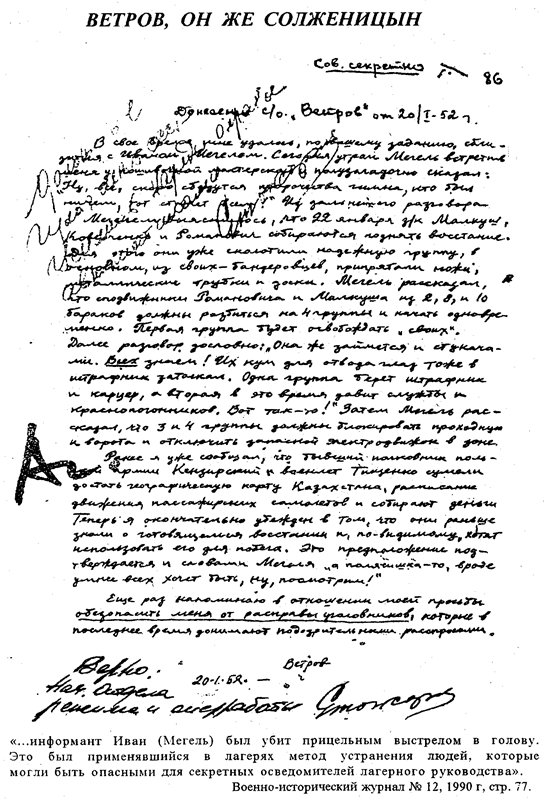 ВЕТРОВ, ОН ЖЕ СОЛЖЕНИЦЫН
Сов. секретно
86
Донесение с/о. „Ветров" от 20/I-52 г.
В свое время мне удалось, по вашему заданию, сбли-
зиться с Иваном Мегелем. Сегодня утром Мегель встретил
меня у пошивочной мастерской и полузагадочно сказал:
"Ну, все, скоро сбудутся пророчества гимна, кто был
ничем, тот станет всем!" Из дальнейшего разговора
с Мегелем выяснилось, что 22 января з/к Малкуш,
Коваленко и Романович собираются поднять восстание.
Для этого они уже сколотили надежную группу, в
основном, из своих - бандеровцев, припрятали ножи,
металлические трубки и доски. Мегель рассказал,
что сподвижники Романовича и Малкуша из 2, 8, и 10
бараков должны разбиться на 4 группы и начать одновре-
менно. Первая группа будет освобождать „своих".
Далее разговор дословно: „Она же займется и стукача-
ми. Всех знаем! Их кум для отвода глаз тоже в
штрафник затолкал. Одна группа берет штрафник
и карцер, а вторая в это время давит службы и
краснопогонников. Вот так-то!" Затем Мегель рас-
сказал, что 3 и 4 группы должны блокировать проходную
и ворота и отключить запасной электродвижок в зоне.
Ранее я уже сообщал, что бывший полковник поль-
ской армии Кензирский и военлет Тищенко сумели
достать географическую карту Казахстана, расписание
движения пассажирских самолетов и собирают деньги
Теперь я окончательно убежден в том, что они раньше
знали о готовящемся восстании и, по-видимому, хотят
использовать его для побега. Это предположение под-
тверждается и словами Мегеля „а полячишка-то, вроде
умнее всех хочет быть, ну, посмотрим!"
Еще раз напоминаю в отношении моей просьбы
обезопасить меня от расправы уголовников, которые в
последнее время донимают подозрительными расспросами.
Ветров
20.1.52.
Верно:
Нач. отдела
режима и оперработы
«...информант Иван (Мегель) был убит прицельным выстрелом в голову.
Это был применявшийся в лагерях метод устранения людей, которые
могли быть опасными для секретных осведомителей лагерного руководства».
Военно-исторический журнал № 12, 1990 г, стр. 77.